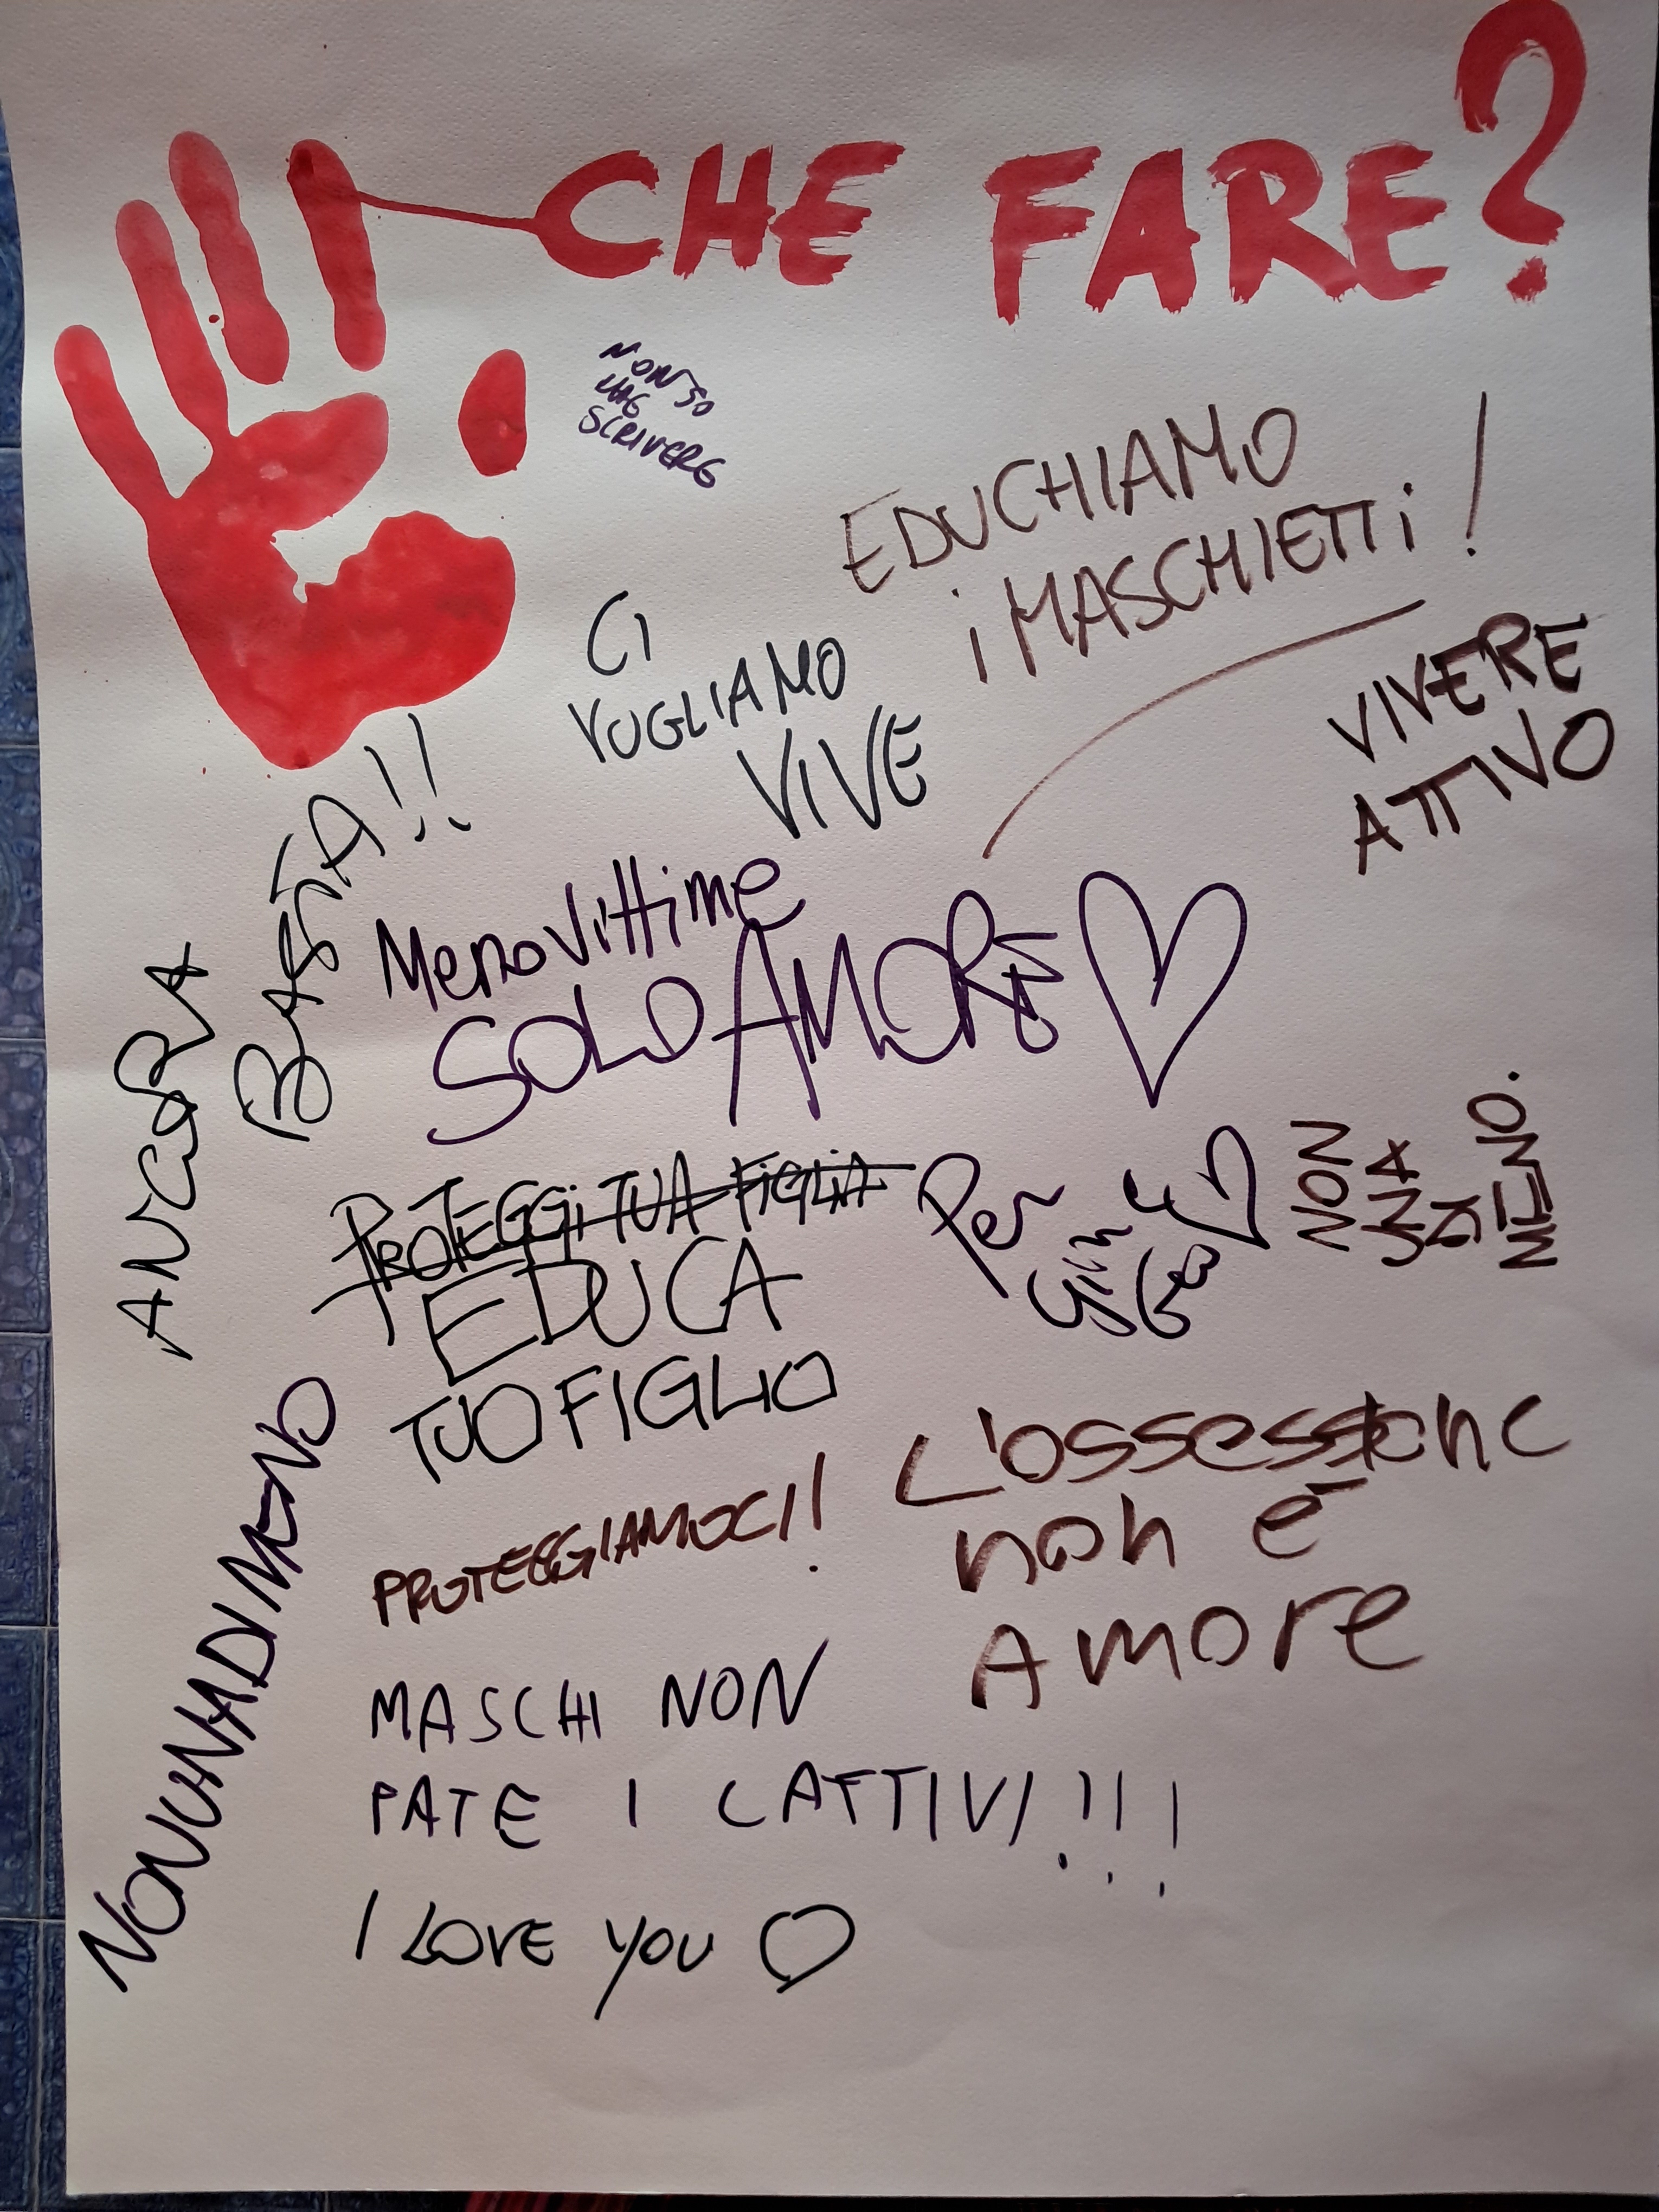 CHE FARE?
NON SO
CHE
SCRIVERE
EDUCHIAMO
i MASCHIETTi!
CI
VOGLIAMO
VIVE
VIVERE
ATTIVO
BASTA!!
ANCORA
Meno Vittime
SOLO AMORE
PROTEGGi TUA FiGLiA
EDUCA
TUO FIGLIO
Per
NON
UNA
DI
MENO.
NON UNA DI MENO
PROTEGGIAMOCI!
L'ossessione
non è
Amore
MASCHI NON
FATE I CATTIVI!!!
I LOVE YOU